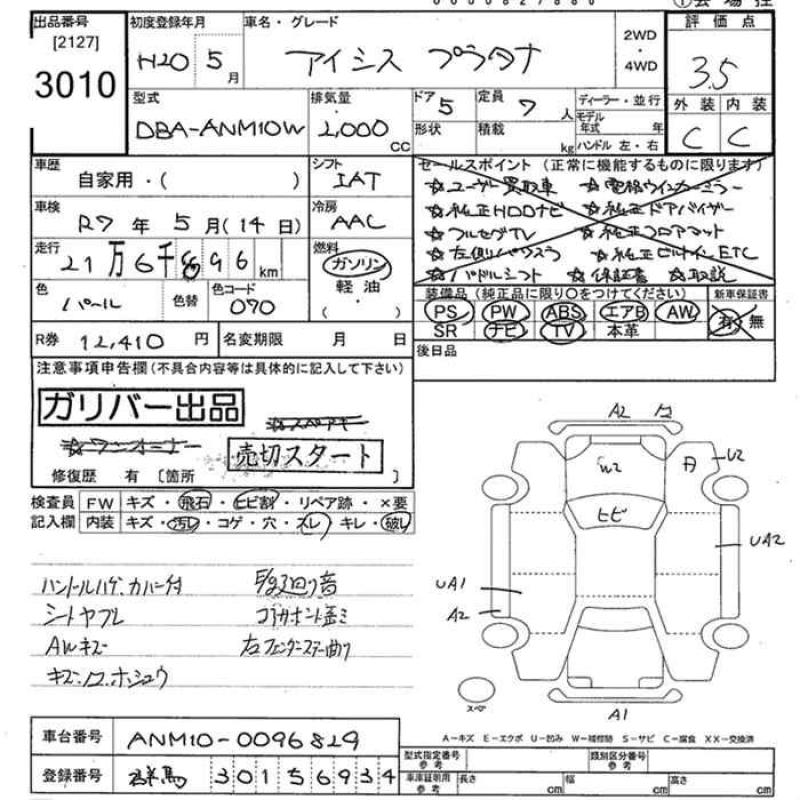 出品番号 初度登録年月 車名・グレード 評価点
[2127]
3010
H20 5月 アイシス プラタナ 2WD・4WD 3.5
型式 排気量 ドア 5 定員 7人 ディーラー・並行 外装 内装
DBA-ANM10W 2,000cc 形状 積載 kg モデル年式 年 C C
ハンドル 左・右
車歴 シフト セールスポイント (正常に機能するものに限ります)
自家用・( ) IAT ☆ユーザー買取車 ☆電格ウインカーミラー
車検 冷房 ☆純正HDDナビ ☆純正ドアバイザー
R7年 5月(14日) AAC ☆フルセグTV ☆純正フロアマット
走行 燃料 ☆左側パワスラ ☆純正ビルトインETC
21万6千896km ガソリン ☆パドルシフト ☆保証書 ☆取説
色 色替 色コード 軽油・ 装備品 (純正品に限り〇をつけてください) 新車保証書
パール 070 ( ) PS PW ABS エアB AW 有・無
SR ナビ TV 本革
R券 12,410円 名変期限 月 日 後日品
注意事項申告欄(不具合内容等は具体的に記入して下さい)
ガリバー出品
☆スペアキー
☆ワンオーナー 売切スタート
修復歴 有 〔箇所 〕
検査員 FW キズ・飛石・ヒビ割・リペア跡・×要
記入欄 内装 キズ・汚レ・コゲ・穴・スレ・キレ・破レ
ハンドルハゲ、カバー付
シートヤブレ
AWキズ
キズ・ハコ・ホシュウ
左フェンダーステー曲り
A2
W2
U2
ヒビ
UA2
UA1
A2
スペア
A1
A-キズ E-エクボ U-凹み W-補修跡 S-サビ C-腐食 XX-交換済
車台番号 ANM10-0096829 型式指定番号 参考 類別区分番号 参考
登録番号 群馬 301 5 6934 車庫証明用 参考 長さ cm 幅 cm 高さ cm